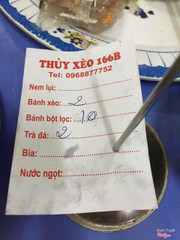 THỦY XÈO 166B
Tel: 0968877752
Nem lụi:
Bánh xèo: 2
Bánh bột lọc: 10
Trà đá: 2
Bia:
Nước ngọt: